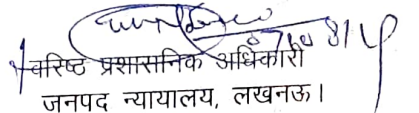 वरिष्ठ प्रशासनिक अधिकारी
जनपद न्यायालय, लखनऊ।